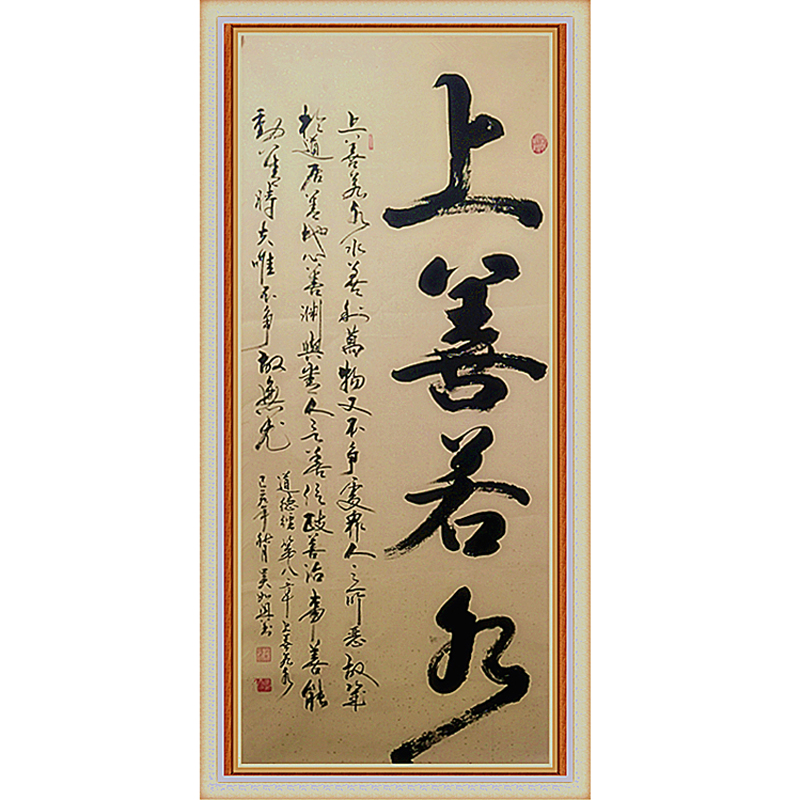 上善若水
上善若水水善利萬物又不争處眾人之所惡故幾
於道居善地心善淵與善人言善信政善治事善能
動善時夫唯不争故無尤
道德經第八章上善若水
己亥年秋月吴如